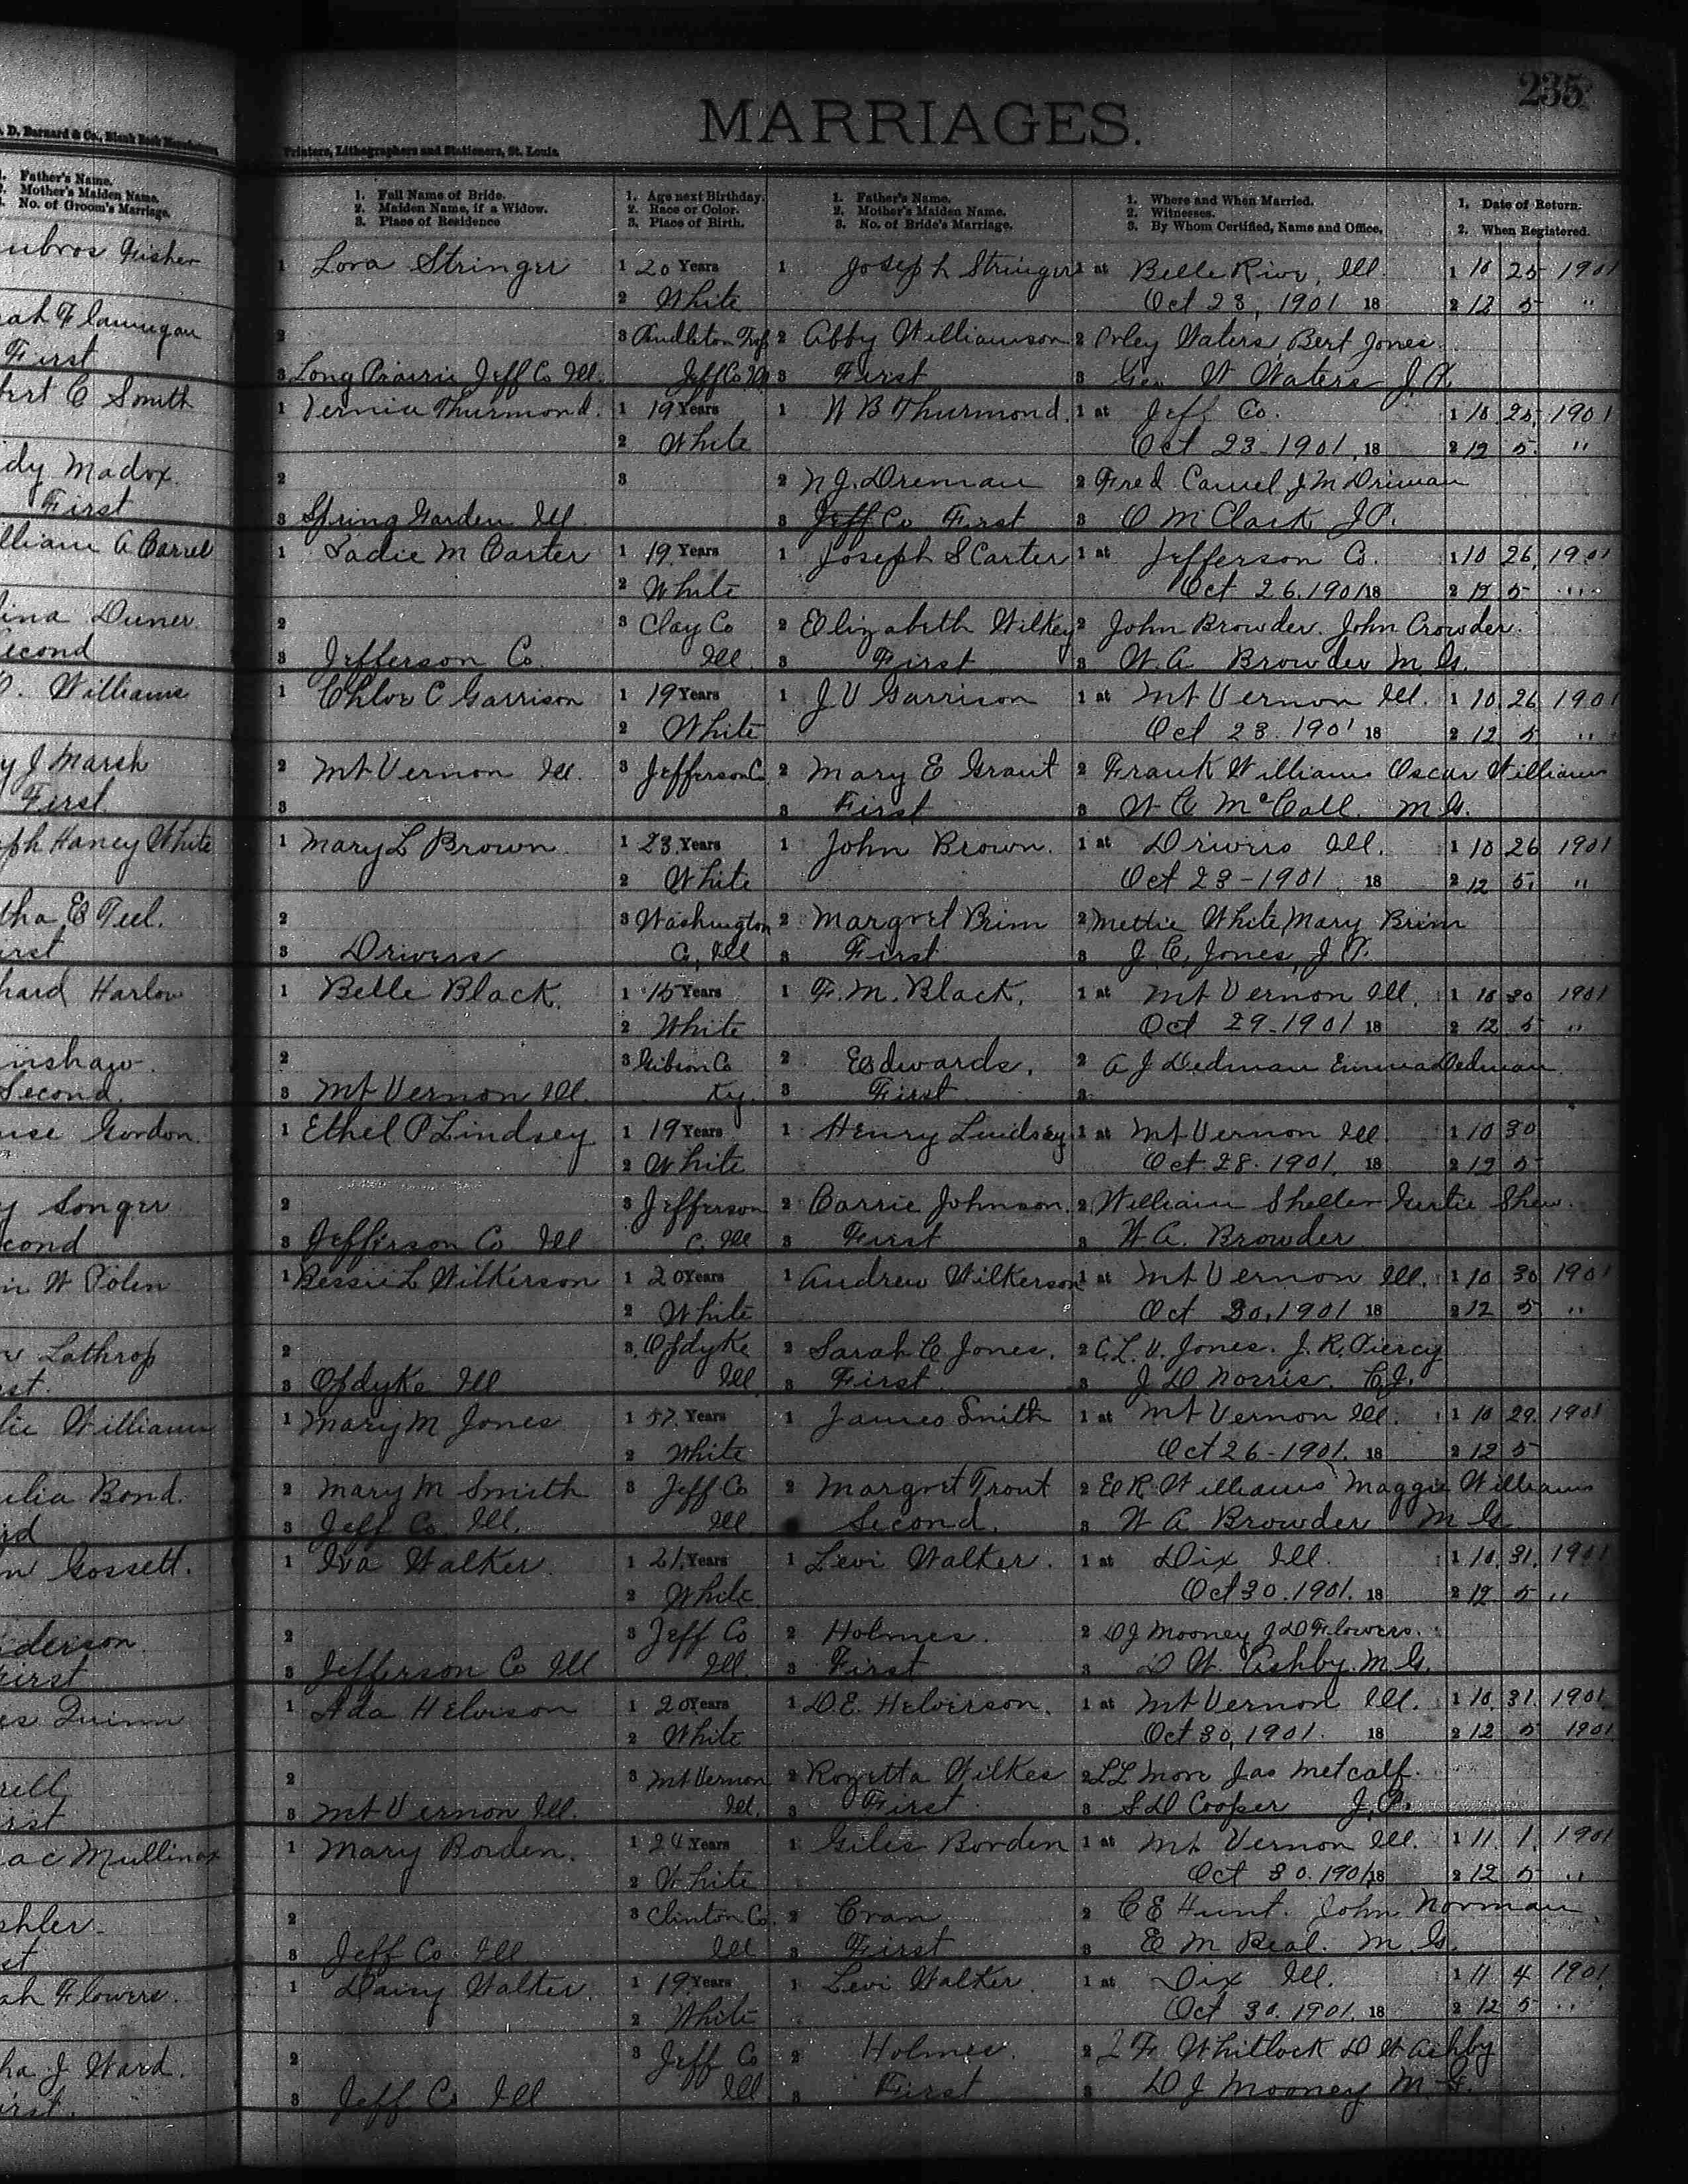 235
MARRIAGES.
. D. Barnard & Co., Blank Book Manufacturers
Printers, Lithographers and Stationers, St. Louis.
1. Father's Name.
2. Mother's Maiden Name.
3. No. of Groom's Marriage.
1. Full Name of Bride.
2. Maiden Name, if a Widow.
3. Place of Residence
1. Age next Birthday.
2. Race or Color.
3. Place of Birth.
1. Father's Name.
2. Mother's Maiden Name.
3. No. of Bride's Marriage.
1. Where and When Married.
2. Witnesses.
3. By Whom Certified, Name and Office.
1. Date of Return.
2. When Registered.
ubros Fisher
1 Lora Stringer 1 20 Years 1 Joseph Stringer 1 at Belle Rive, Ill. 1 10 25 1901
2 White Oct 23, 1901 18 2 12 5 "
rah Flannigan
2 3 Pendleton Twp 2 Abby Williamson 2 Orley Waters Bert Jones
First
3 Long Prairie Jeff Co Ill. Jeff Co Ill 3 First 3 Geo W Waters J.P.
bert C Smith
1 Vernia Thurmond. 1 19 Years 1 W B Thurmond. 1 at Jeff Co. 1 10 25 1901
2 White Oct 23-1901, 18 2 12 5 "
dy Madox.
2 3 2 N J. Dreman 2 Fred Camel J M Driman
First
3 Spring Garden Ill 3 Jeff Co First 3 O M Clark J P.
lliam A Carrel
1 Sadie M Carter 1 19 Years 1 Joseph S Carter 1 at Jefferson Co. 1 10 26, 1901
2 White Oct 26. 1901 18 2 12 5 "
ina Duner.
2 3 Clay Co 2 Elizabeth Wilkey 2 John Browder. John Crowder.
Second
3 Jefferson Co. Ill 3 First 3 W. A Browder M. G.
O. Williams
1 Chloe C Garrison 1 19 Years 1 J V Garrison 1 at Mt Vernon Ill. 1 10 26 1901
2 White Oct 23. 1901 18 2 12 5 "
y J Marsh
2 Mt Vernon Ill. 3 Jefferson Co 2 Mary E Grant 2 Frank Williams Oscar Williams
First
3 3 First 3 W. C McCall. M G.
ph Haney White
1 Mary L Brown 1 23 Years 1 John Brown. 1 at Drivers Ill. 1 10 26 1901
2 White Oct 23-1901 18 2 12 5 "
tha E Teel.
2 3 Washington 2 Margret Brim 2 Mettie White Mary Brim
irst
3 Drivers Co, Ill 3 First 3 J. C. Jones, J P.
hard Harlow
1 Belle Black. 1 15 Years 1 F. M. Black, 1 at Mt Vernon Ill. 1 10 30 1901
2 White Oct 29-1901 18 2 12 5 "
inshaw.
2 3 Gibson Co 2 Edwards, 2 A J Dedman Emma Dedman
Second.
3 Mt Vernon Ill. Ky. 3 First 3
ise Gordon.
1 Ethel P Lindsey 1 19 Years 1 Henry Lindsey 1 at Mt Vernon Ill 1 10 30
2 White Oct 28. 1901. 18 2 12 5
y Songer
2 3 Jefferson 2 Carrie Johnson. 2 William Sheller Gertie Shew.
cond
3 Jefferson Co Ill C. Ill 3 First 3 W A. Browder
n W Polen
1 Bessie L Wilkerson 1 20 Years 1 Andrew Wilkerson 1 at Mt Vernon Ill. 1 10 30 1901
2 White Oct 30, 1901 18 2 12 5 "
Lathrop
2 3 Opdyke 2 Sarah C Jones. 2 C. L. V. Jones. J. R. Piercy
st.
3 Opdyke Ill Ill 3 First 3 J D Norris. C. J.
lie Williams
1 Mary M Jones 1 57 Years 1 James Smith 1 at Mt Vernon Ill. 1 10 29 1901
2 White Oct 26-1901. 18 2 12 5
ulia Bond.
2 Mary M Smith 3 Jeff Co 2 Margret Trout 2 E R Williams Maggie Williams
rd
3 Jeff Co. Ill. Ill Second. 3 W A Browder M G
n Gossett.
1 Iva Walker 1 21 Years 1 Levi Walker. 1 at Dix Ill. 1 10 31, 1901
2 White Oct 30. 1901. 18 2 12 5 "
derson.
2 3 Jeff Co 2 Holmes. 2 D J Mooney J D Flowers.
First
3 Jefferson Co Ill Ill. 3 First 3 D W. Ashby. M G.
es Quinn
1 Ada Helvison 1 20 Years 1 D. E. Helvirson. 1 at Mt Vernon Ill. 1 10. 31 1901
2 White Oct 30, 1901. 18 2 12 5 1901
rell
2 3 Mt Vernon 2 Rozetta Wilkes 2 L L More Jas Metcalf.
rst
3 Mt Vernon Ill. Ill. 3 First 3 S D Cooper J. P.
ac Mullinax
1 Mary Borden. 1 24 Years 1 Giles Borden 1 at Mt Vernon Ill. 1 11. 1. 1901
2 White Oct 30. 1901 18 2 12 5 "
shler.
2 3 Clinton Co. 2 Cran 2 C E Hunt. John Norman
st
3 Jeff Co Ill Ill 3 First 3 E M Beal. M. G.
ah Flowers.
1 Daisy Walker. 1 19 Years 1 Levi Walker 1 at Dix Ill. 1 11 4 1901
2 White Oct 30. 1901. 18 2 12 5 "
ha J Ward.
2 3 Jeff Co 2 Holmes. 2 Whitlock D W Ashby
irst.
3 Jeff Co Ill Ill 3 First 3 D J Mooney M G.